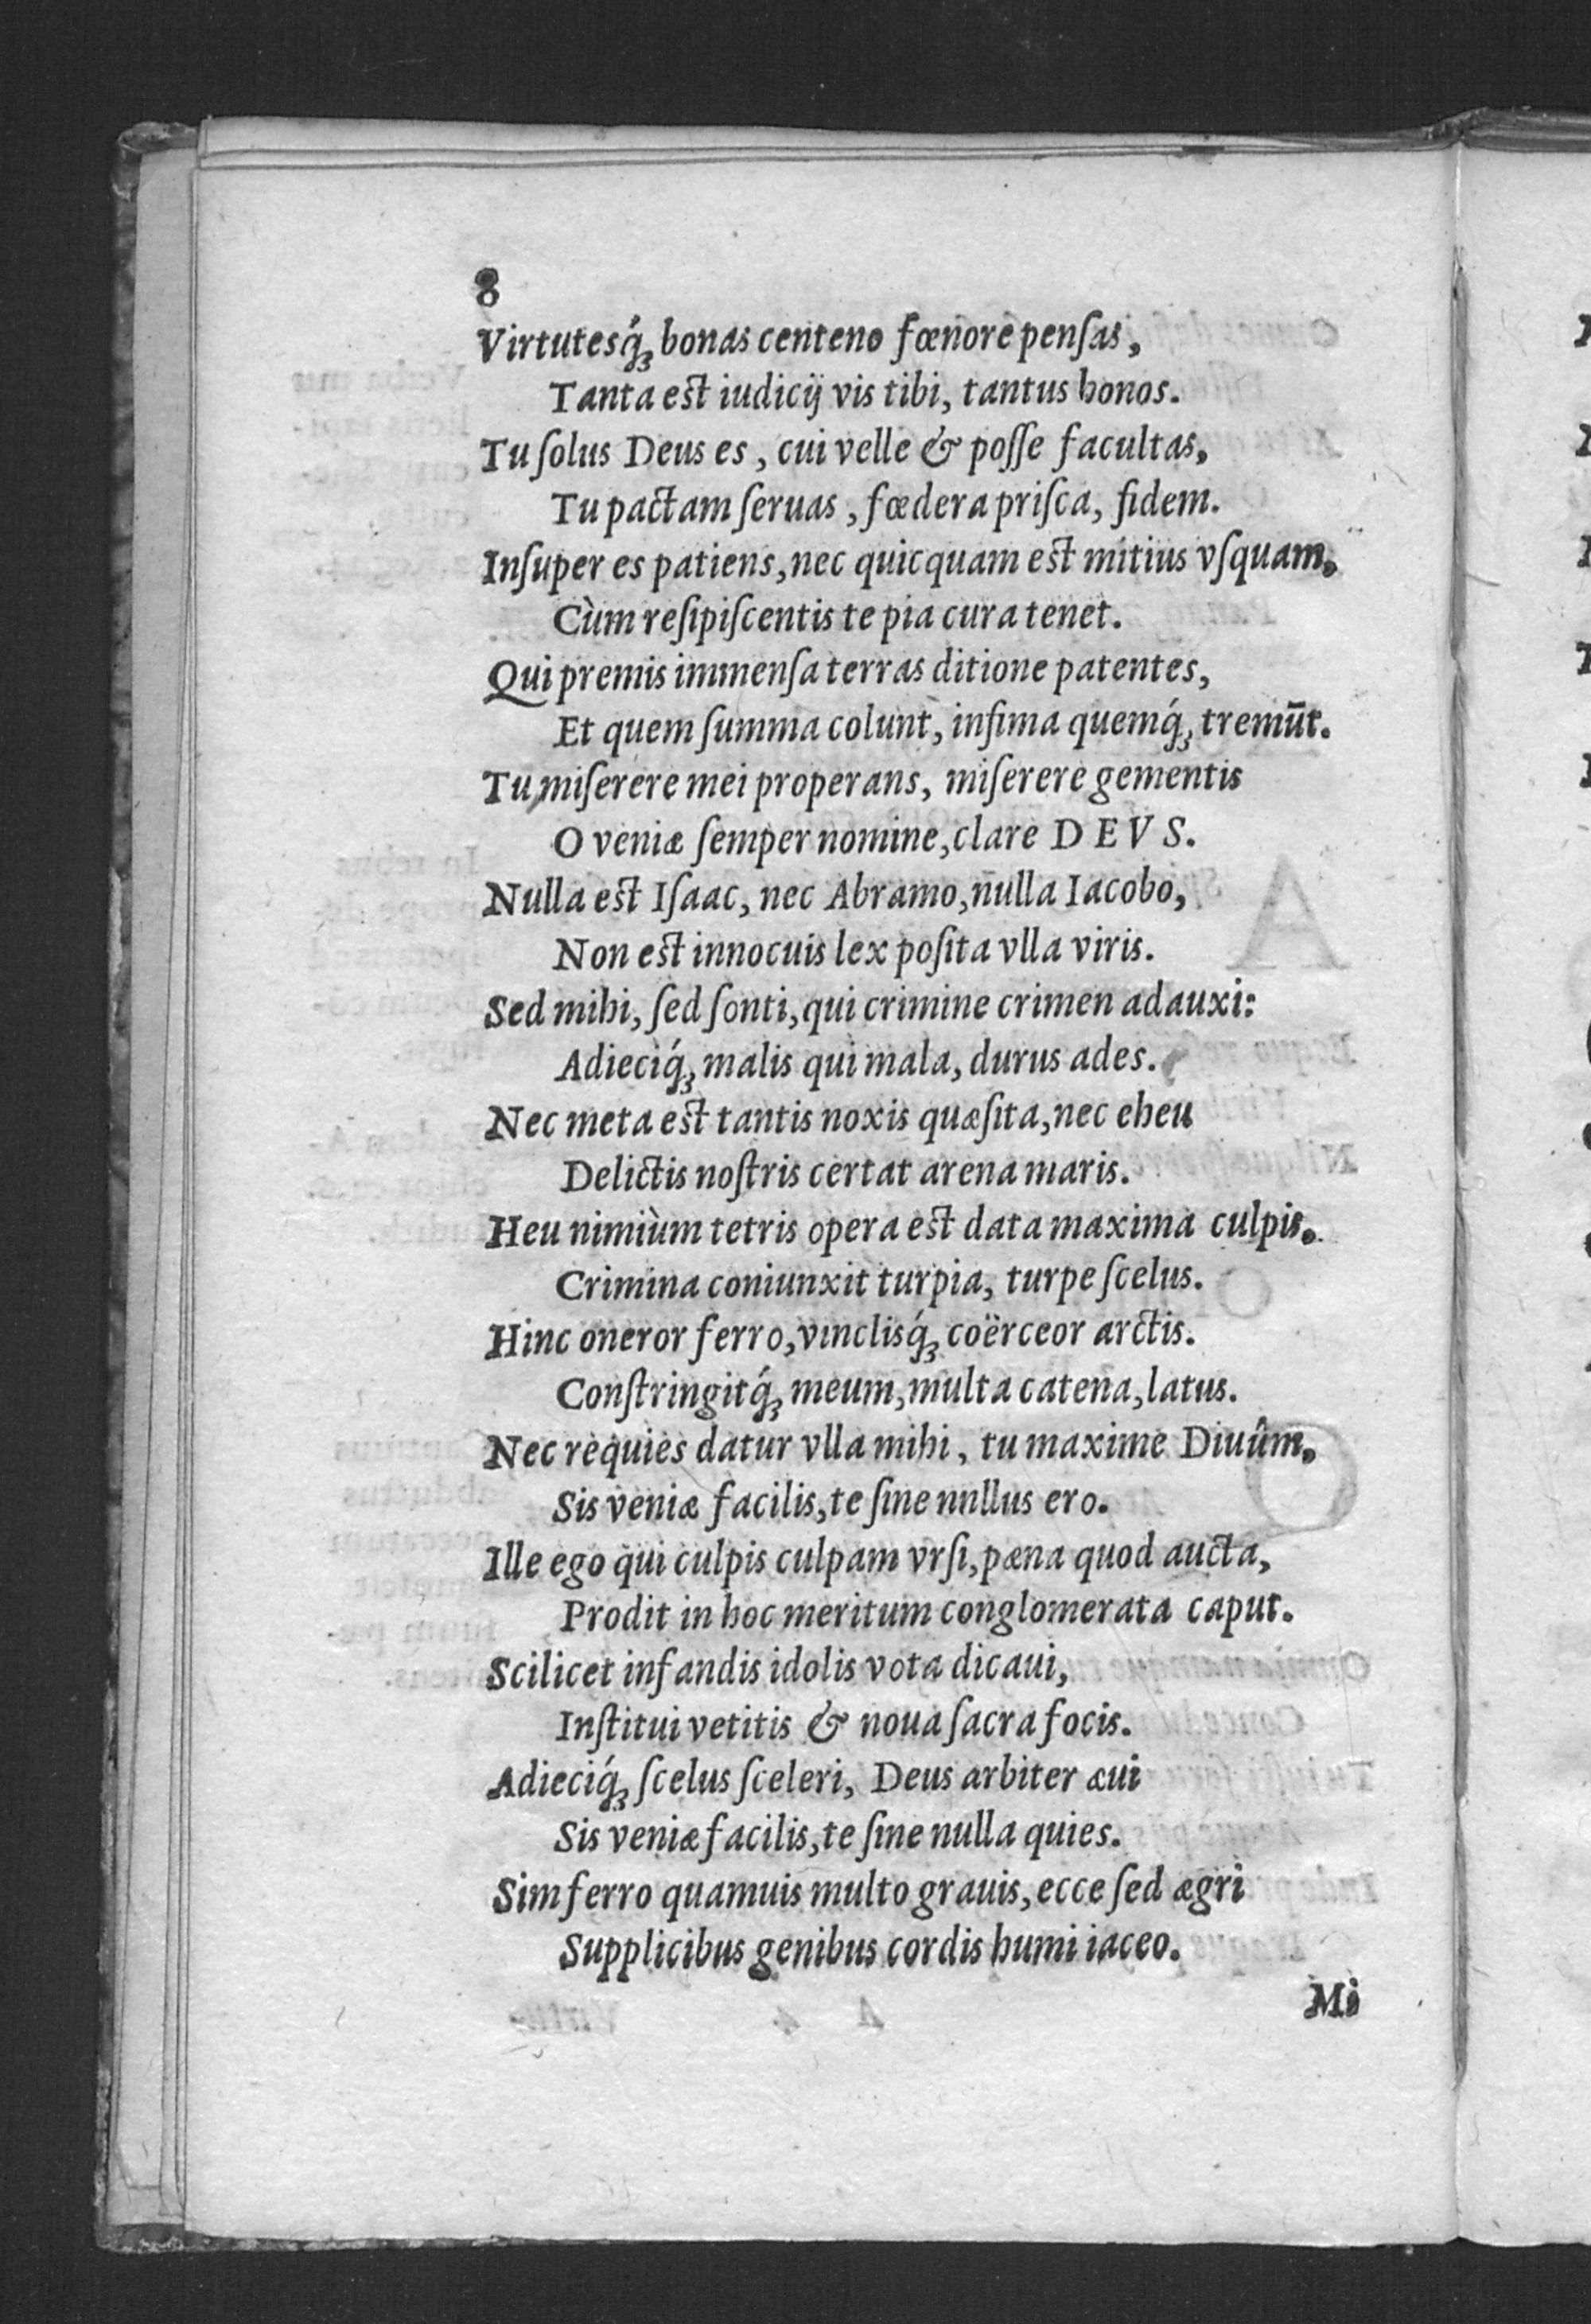 8
Virtutesq́ꝫ bonas centeno fœnore penſas,
Tanta est iudicij vis tibi, tantus honos.
Tu ſolus Deus es, cui velle & poſſe facultas,
Tu pactam ſeruas, fœdera priſca, fidem.
Inſuper es patiens, nec quicquam est mitius vſquam.
Cùm reſipiſcentis te pia cura tenet.
Qui premis immenſa terras ditione patentes,
Et quem ſumma colunt, infima quemq́ꝫ tremūt.
Tu miſerere mei properans, miſerere gementis
O veniæ ſemper nomine, clare D E V S.
Nulla est Iſaac, nec Abramo, nulla Iacobo,
Non est innocuis lex poſita vlla viris.
Sed mihi, ſed ſonti, qui crimine crimen adauxi:
Adieciq́ꝫ malis qui mala, durus ades.
Nec meta est tantis noxis quæſita, nec eheu
Delictis noſtris certat arena maris.
Heu nimiùm tetris opera est data maxima culpis.
Crimina coniunxit turpia, turpe ſcelus.
Hinc oneror ferro, vinclisq́ꝫ coërceor arctis.
Conſtringitq́ꝫ meum, multa catena, latus.
Nec requies datur vlla mihi, tu maxime Diuûm.
Sis veniæ facilis, te ſine nnllus ero.
Ille ego qui culpis culpam vrſi, pæna quod aucta,
Prodit in hoc meritum conglomerata caput.
Scilicet infandis idolis vota dicaui,
Inſtitui vetitis & noua ſacra focis.
Adieciq́ꝫ ſcelus ſceleri, Deus arbiter æui
Sis veniæ facilis, te ſine nulla quies.
Sim ferro quamuis multo grauis, ecce ſed ægri
Supplicibus genibus cordis humi iaceo.
Mi